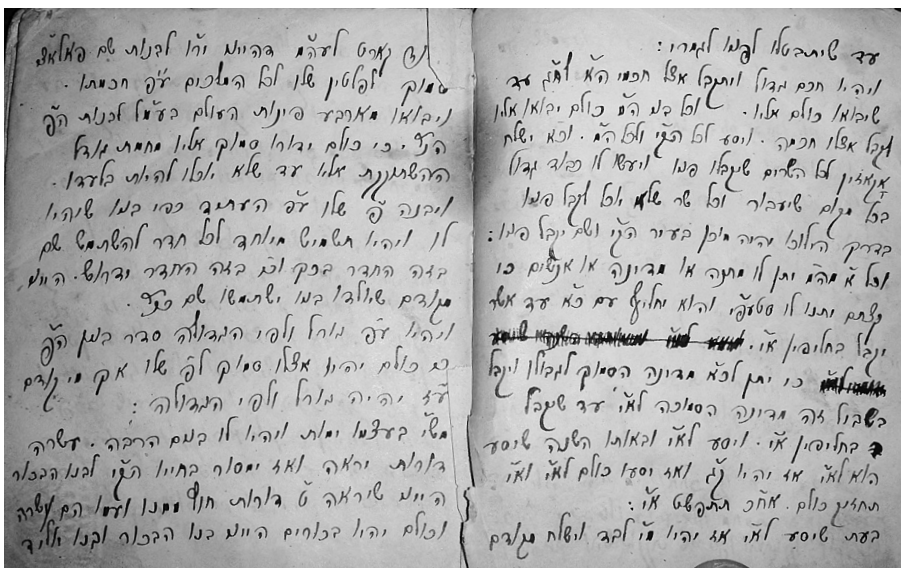 עד שיתבטלו לפניו לגמרי :
ויהיו חכם גדול ויתקבל אצל חכמי עד
שיבואו כולם אליו . וכל בני כולם יבואו אליו
לקבל אצלו חכמה . ויסע לכל הקי' ולכל . והוא ישלח
לכל השרים שיקבלו פניו ויעשו לו כבוד גדול
בכל מקום שיעבור וכל שר שלא יוכל לקבל פניו
בדרך הילוכו יהיה מוכן בעיר הקי' ושם יקבל פניו :
וכל א' מהם יתן לו מתנה או מדינה או אנשים כי
קצתם יתנו לו והוא יחליף עם כ"א עד אשר
יקבל בחליפין א"י .
כי יתן לכ"א מדינה הסמוך לגבולו ויקבל
בשבול זה מדינה הסמוכה לא"י עד שיקבל
בחליפין א"י . ויסע לא"י ובאותו השנה שיסע
הוא לא"י אז יהיו ק"ג ואז יסעו כולם לא"י וא"י
תחזיק כולם . אח"כ תתפשט א"י :
בעת שיסע לא"י אז יהיו לבד וישלח מקודם
דהיינו לבנות שם פאלאץ
סמוך לפלטין שלו לכל המלכים ע"פ חכמתו .
ויבואו מארבע פינות העולם לבנות
כי כולם ידורו סמוך אליו מחמת גודל
ההשתוקקות אליו עד שלא יוכלו להיות בלעדו .
ויבנה שלו ע"פ העתיד כפי בניו שיהיו
לו ויהיו תשמיש מיוחד לכל חדר להשתמש שם
בזה החדר בכך וכך בזה החדר ידרוש . היינו
מקודם שיולדו בניו ישתמשו שם
ויהיו ע"פ גורל ולפי הגדולה סדר בנין
כי כולם יהיו אצלו סמוך שלו אך מי קודם
עז יהיה גורל ולפי הגדולה :
בעצמו ימות ויהיו לו בנים הרבה . עשרה
דורות יראה ואז ימסור בחייו לבנו הבכור
היינו שיראה ט' דורות חוץ ממנו ועמו הם עשרה
וכולם יהיו בכורים היינו בנו הבכור ובנו יוליד